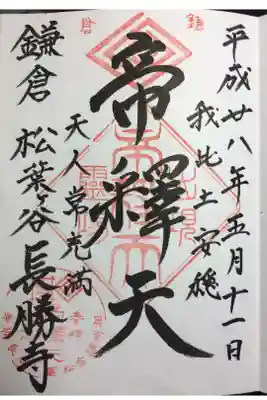 平成廿八年五月十一日
我此土安穏
帝釋天
天人常充満
鎌倉
鎌倉 松葉谷 長勝寺